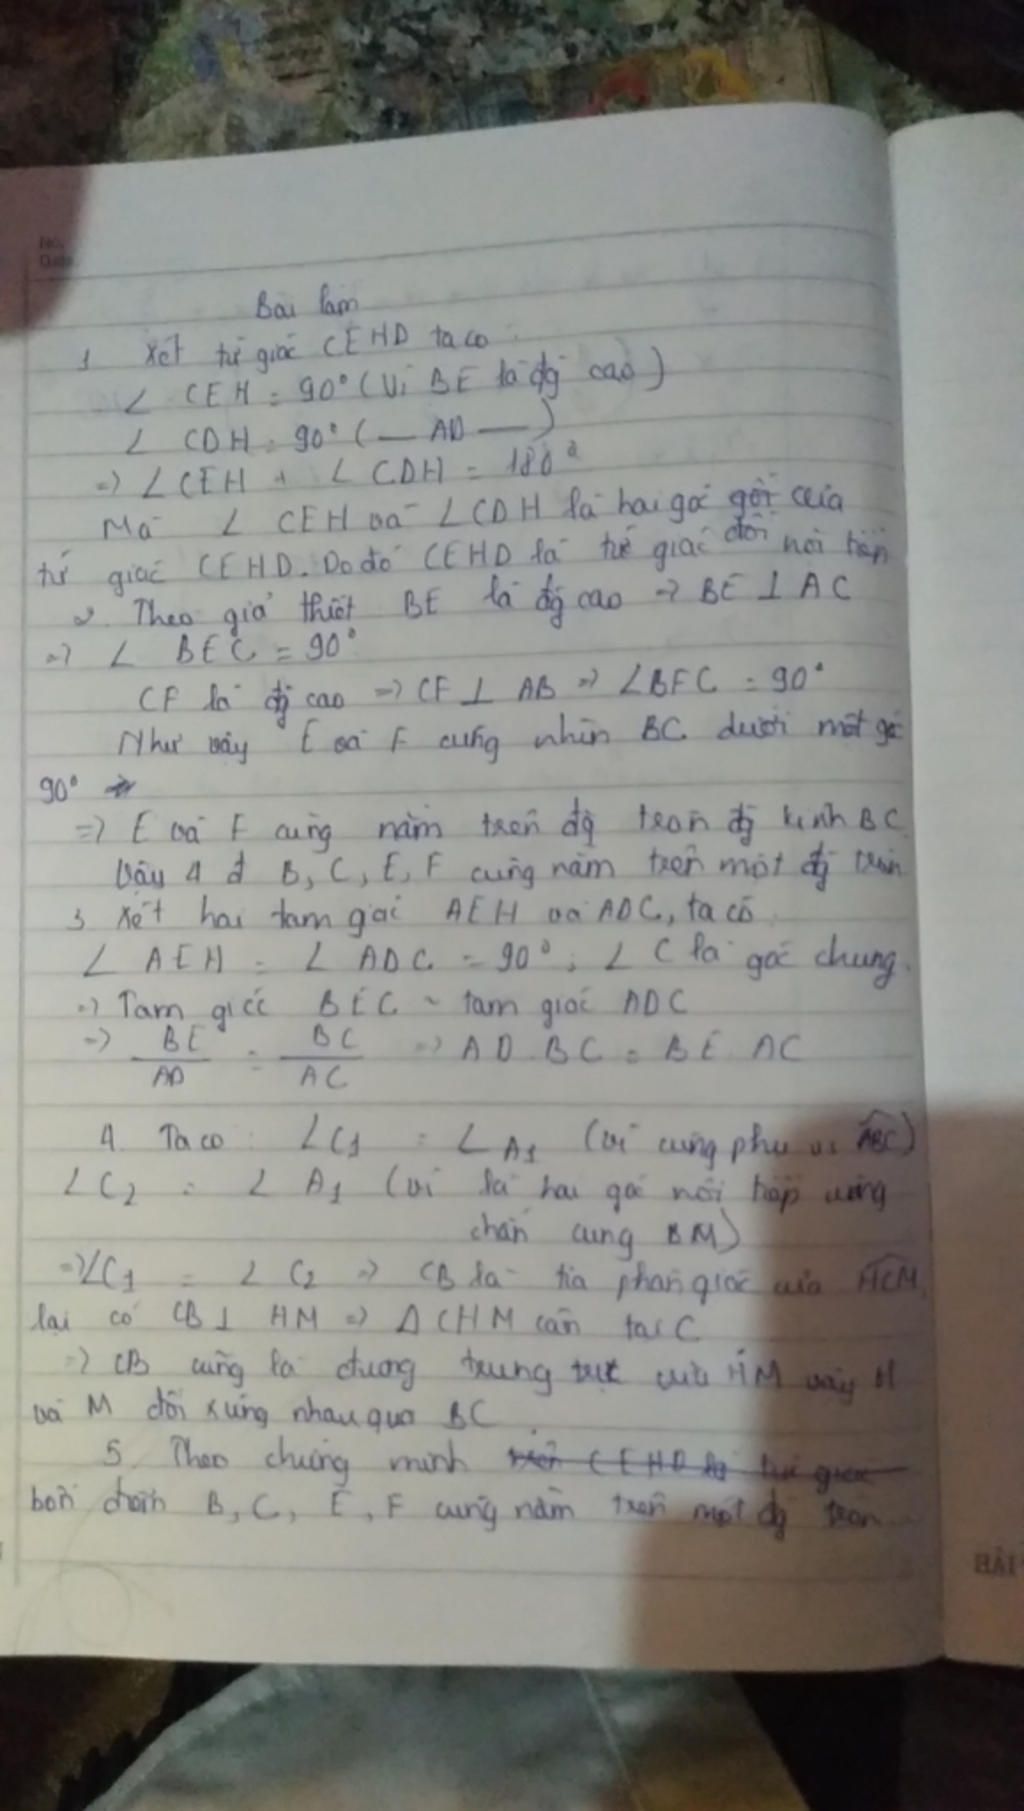 No.
Date
Bài làm
1 Xét tứ giác CEHD ta có :
∠ CEH = 90° (Vì BE là đg cao)
∠ CDH = 90° ( — AD — )
=> ∠CEH + ∠CDH = 180°
Mà ∠ CEH và ∠CDH là hai góc gối của
tứ giác CEHD. Do đó CEHD là tứ giác đối nội tiếp
2. Theo giả thiết BE là đg cao => BE ⊥ AC
=> ∠ BEC = 90°
CF là đg cao => CF ⊥ AB => ∠BFC = 90°
Như vậy E và F cùng nhìn BC dưới một góc
90°
=> E và F cùng nằm trên đg tròn đg kính BC
Vậy 4 đ B, C, E, F cùng nằm trên một đg tròn
3 Xét hai tam giác AEH và ADC, ta có
∠ AEH = ∠ ADC = 90° ; ∠ C là góc chung.
=> Tam giác BEC ~ tam giác ADC
=> BE/AD = BC/AC => AD.BC = BE AC
4. Ta có : ∠C1 = ∠A1 (vì cùng phụ vs ABC)
∠C2 = ∠ A1 (vì là hai góc nội tiếp cùng
chắn cung BM)
=> ∠C1 = ∠ C2 => CB là tia phân giác của HCM,
lại có CB ⊥ HM => Δ CHM cân tại C
=> CB cũng là đương trung trực của HM vậy H
và M đối xứng nhau qua BC
5. Theo chứng minh trên CEHD là tứ giác
bốn điểm B, C, E, F cùng nằm trên một đg tròn
BÀI